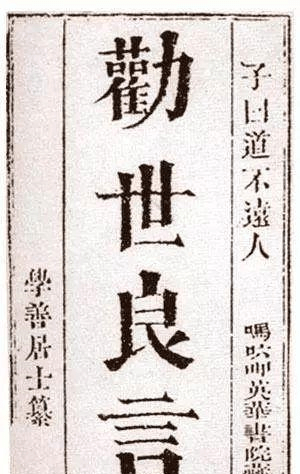 子曰道不遠人
嗎呷英華書院藏
勸世良言
學善居士纂